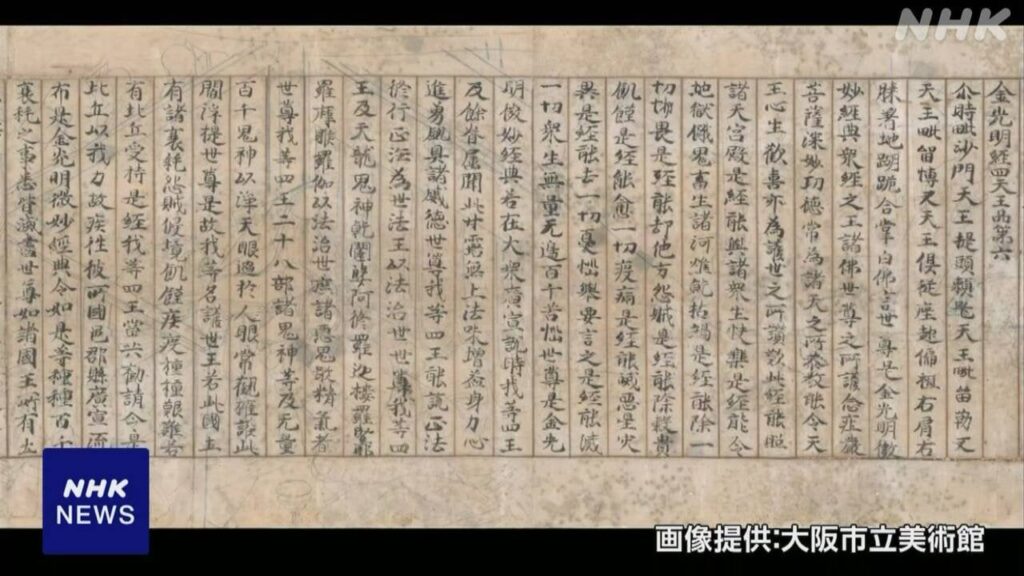 NHK
金光明經四天王品第六
尒時毗沙門天王提頭頼吒天王毗留勒叉
天王毗留博叉天王俱從座起偏袒右肩右
膝著地䠒跪合掌白佛言世尊是金光明微
妙經典衆經之王諸佛世尊之所護念莊嚴
菩薩深妙功德常為諸天之所恭敬能令天
王心生歡喜亦為護世之所讚歎此經能照
諸天宮殿是經能與諸衆生快樂是經能令
地獄餓鬼畜生諸河燋乾枯竭是經能除一
切怖畏是經能却他方怨賊是經能除穀貴
飢饉是經能愈一切疫病是經能滅惡星火
異是經能去一切憂惱擧要言之是經能滅
一切衆生無量无邊百千苦惱世尊是金光
明微妙經典若在大衆廣宣說時我等四王
及餘眷屬聞此甘露无上法味增益身力心
進勇銳具諸威德世尊我等四王能說正法
修行正法為世法王以法治世世尊我等四
王及天龍鬼神乾闥婆阿修羅迦樓羅緊那
羅摩睺羅伽以法治世遮諸惡鬼噉精氣者
世尊我等四王二十八部諸鬼神等及无量
百千鬼神以淨天眼過於人眼常觀擁護此
閻浮提世尊是故我等名護世王若此國土
有諸衰耗怨賊侵境飢饉疾疫種種艱難若
有比丘受持是經我等四王當共勸請令是
比丘以我力故疾往彼所國邑郡縣廣宣流
布是金光明微妙經典令如是等種種百千
衰耗之事悉皆滅盡世尊如諸國王所有土
NHK
NEWS
画像提供:大阪市立美術館